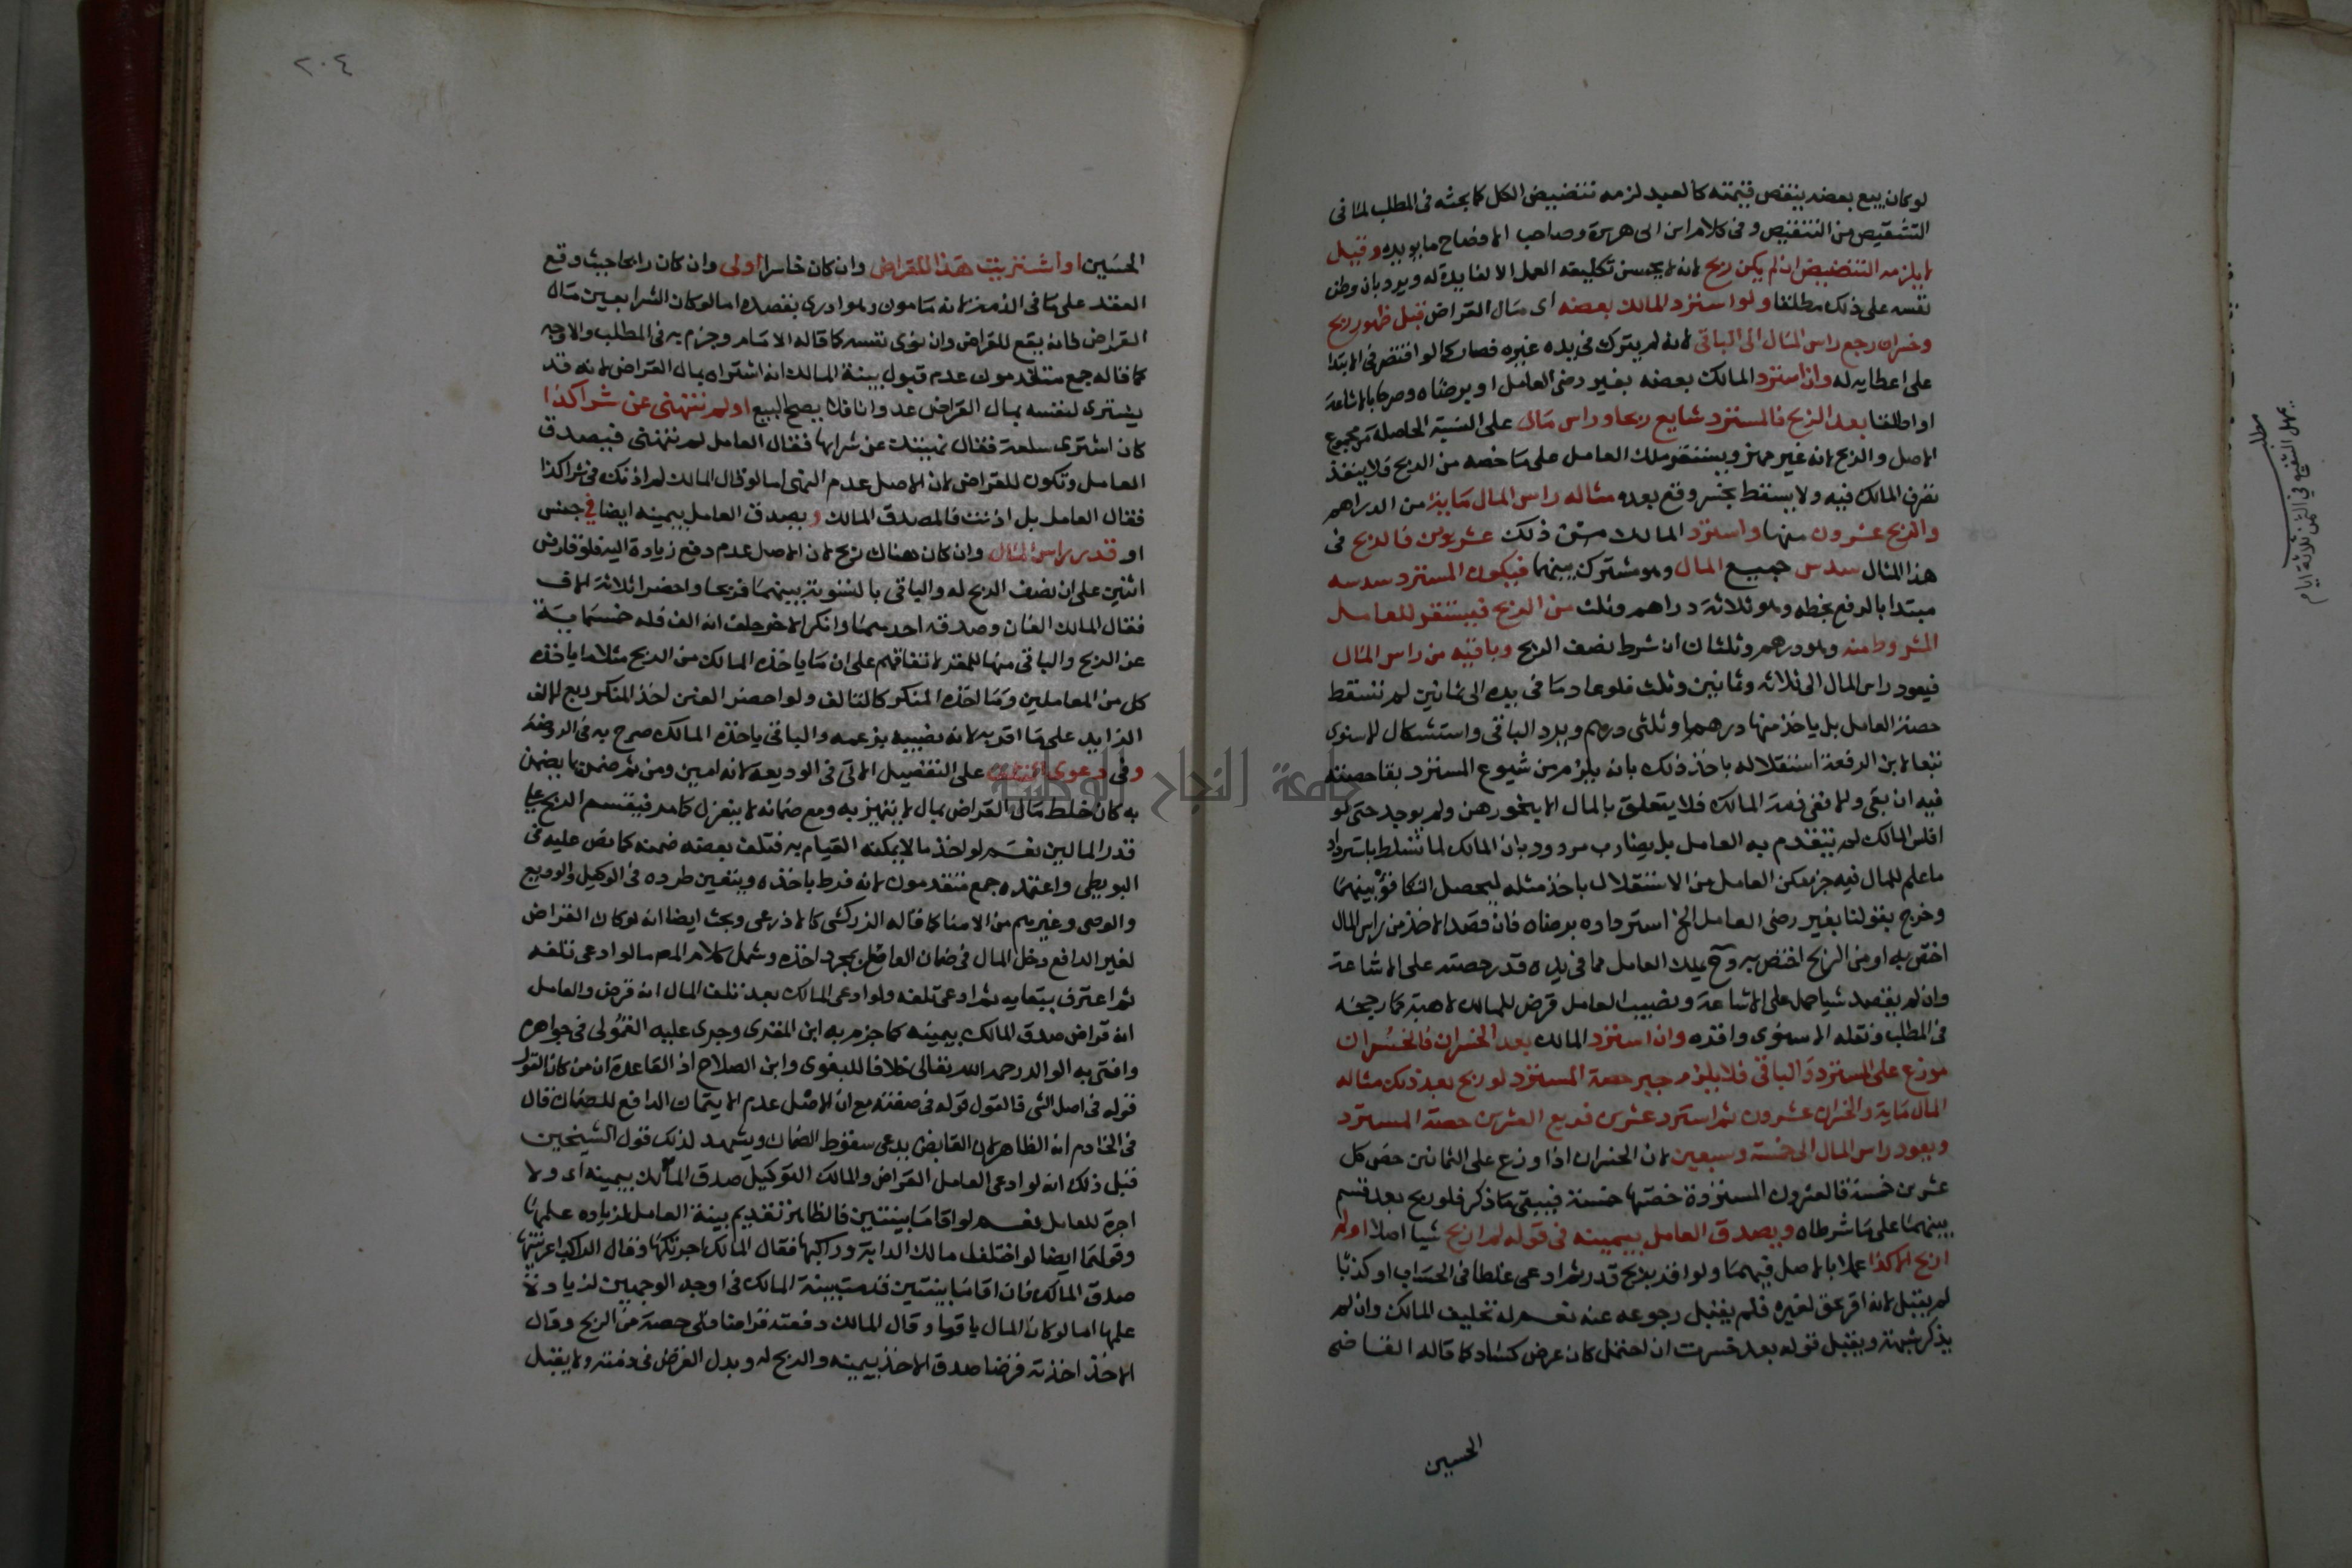 لو كان بيع بعضه ينقص قيمته كالعبد لزمه تنضيض الكل كما بحثه في المطلب لما في
التشقيص من التنقيص وفي كلام ابن ابي هريرة وصاحب الافصاح ما يويده وقيل
لا يلزمه التنضيض ان لم يكن ربح لانه لا يحسن تكليفه العمل الا لفايدة له ويرد بان وطن
نفسه على ذلك مطلقا ولو استرد المالك بعضه اى مال القراض قبل ظهور ربح
وخسران رجع راس المال الى الباقي لانه لم يترك في يده غيره فصار كما لو اقتصر في الابتدا
على اعطايه له وان استرد المالك بعضه بغير رضى العامل او برضاه وصرحا بالاشاعة
او اطلقا بعد الربح فالمسترد شايع ربحا وراس مال على النسبة الحاصلة من مجموع
الاصل والربح لانه غير مميز ويستقر ملك العامل على ما خصه من الربح فلا ينفذ
تصرف المالك فيه ولا يسقط بخسر وقع بعده مثاله راس المال ماية من الدراهم
والربح عشرون منها واسترد المالك من ذلك عشرين فالربح في
هذا المثال سدس جميع المال وهو مشترك بينهما فيكون المسترد سدسه
مبتدا بالرفع بخطه وهو ثلاثة دراهم وثلث من الربح فيستقر للعامل
المشروط منه وهو درهم وثلثان ان شرط نصف الربح وباقيه من راس المال
فيعود راس المال الى ثلاثة وثمانين وثلث فلو عاد ما في يده الى ثمانين لم تسقط
حصة العامل بل ياخذ منها درهما وثلثي درهم ويرد الباقي واستشكال الاسنوى
تبعا لابن الرفعة استقلاله باخذ ذلك بانه يلزم من شيوع المسترد بقا حصته
فيه ان بقي والا ففي ذمة المالك فلا يتعلق بالمال الا بنحو رهن ولم يوجد حتى لو
افلس المالك لم يتقدم به العامل بل يضارب مردود بان المالك لما تسلط باسترداد
ما علم للمال فيه جزء مكن العامل من الاستقلال باخذ مثله ليحصل التكافؤ بينهما
وخرج بقولنا بغير رضى العامل الخ استرداده برضاه فان قصد الاخذ من راس المال
اختص به او من الربح اختص به وح يملك العامل مما في يده قدر حصته على الاشاعة
وان لم يقصد شيا حمل على الاشاعة ونصيب العامل قرض للمالك لا هبة كما رجحه
في المطلب ونقله الاسنوى واقره وان استرد المالك بعد الخسران فالخسران
موزع على المسترد والباقي فلا يلزم جبر حصة المسترد لو ربح بعد ذلك مثاله
المال ماية والخسران عشرون ثم استرد عشرين فربع العشرين حصة المسترد
ويعود راس المال الى خمسة وسبعين لان الخسران اذا وزع على الثمانين خص كل
عشرين خمسة فالعشرون المستردة خصتها خمسة فيبقى ما ذكر فلو ربح بعد قسم
بينهما على ما شرطاه ويصدق العامل بيمينه في قوله لم اربح شيا اصلا او لم
اربح الا كذا عملا بالاصل فيهما ولو اقر بربح قدر ثم ادعى غلطا في الحساب او كذبا
لم يقبل لانه اقر بحق لغيره فلم يقبل رجوعه عنه نعم له تحليف المالك وان لم
يذكر شبهة ويقبل قوله بعد خسرت ان احتمل كان عرض كساد كما قاله القاضي
الحسين
مطلب
يمهل الشفيع في الثمن ثلاثة ايام
٢٠٤
الحسين او اشتريت هذا للقراض وان كان خاسرا اولى وان كان رابحا حيث وقع
العقد على ما في الذمة لانه مامون وهو ادرى بقصده اما لو كان الشرا بعين مال
القراض فانه يقع للقراض وان نوى نفسه كما قاله الامام وجزم به في المطلب والاوجه
كما قاله جمع متقدمون عدم قبول بينة المالك انه اشتراه بمال القراض لانه قد
يشترى لنفسه بمال القراض عدوانا فلا يصح البيع او لم تنهني عن شرا كذا
كان اشترى سلعة فقال نهيتك عن شرايها فقال العامل لم تنهني فيصدق
العامل وتكون للقراض لان الاصل عدم النهي اما لو قال المالك لم اذنك في شرا كذا
فقال العامل بل اذنت فالمصدق المالك ويصدق العامل بيمينه ايضا في جنس
او قدر راس المال وان كان هناك ربح لان الاصل عدم دفع زيادة اليه فلو قارض
اثنين على ان نصف الربح له والباقي بالسوية بينهما فربحا واحضرا ثلاثة الاف
فقال المالك الفان وصدقه احدهما وانكر الاخر حلف انه الف فله خمسماية
عن الربح والباقي منها للمقر لاتفاقهم على ان ما ياخذه المالك من الربح مثلا ما ياخذه
كل من العاملين وما اخذه المنكر كالتالف ولو احضر الفين اخذ المنكر ربع الالف
الزايد على ما اقر به لانه نصيبه بزعمه والباقي ياخذه المالك صرح به في الروضة
وفي دعوى التلف على التفصيل الاتي في الوديعة لانه امين ومن ثم ضمن بما يضمن
به كان خلط مال القراض بمال لا يتميز به ومع ضمانه لا ينعزل كما مر فيقسم الربح على
قدر المالين نعم لو اخذ مالا يمكنه القيام به فتلف بعضه ضمنه كما نص عليه في
البويطي واعتمده جمع متقدمون لانه فرط باخذه ويتعين طرده في الوكيل والوديع
والوصى وغيرهم من الامنا كما قاله الزركشي كالاذرعي وبحث ايضا انه لو كان القراض
لغير الدافع دخل المال في ضمان العامل بمجرد اخذه وشمل كلام المص ما لو ادعى تلفه
ثم اعترف ببقايه ثم ادعى تلفه ولو ادعى المالك بعد تلف المال انه قرض والعامل
انه قراض صدق المالك بيمينه كما جزم به ابن المقرى وجرى عليه القمولي في جواهره
وافتى به الوالد رحمه الله تعالى خلافا للبغوى وابن الصلاح اذ القاعدة ان من كان القول
قوله في اصل الشى فالقول قوله في صفته مع ان الاصل عدم الايتمان الدافع للضمان قال
في الخادم انه الظاهر لان القابض يدعى سقوط الضمان ويشهد لذلك قول الشيخين
قبل ذلك انه لو ادعى العامل القراض والمالك التوكيل صدق المالك بيمينه اى ولا
اجرة للعامل نعم لو اقاما بينتين فالظاهر تقديم بينة العامل لزيادة علمها
وقولهما ايضا لو اختلف مالك الدابة وراكبها فقال المالك اجرتكها وقال الراكب اعرتنيها
صدق المالك فان اقاما بينتين قدمت بينة المالك في اوجه الوجهين لزيادة
علمها اما لو كان المال باقيا وقال المالك دفعته قراضا فلى حصة من الربح وقال
الاخذ اخذته قرضا صدق الاخذ بيمينه والربح له وبدل القرض في ذمته ولا يقبل
جامعة النجاح الوطنية